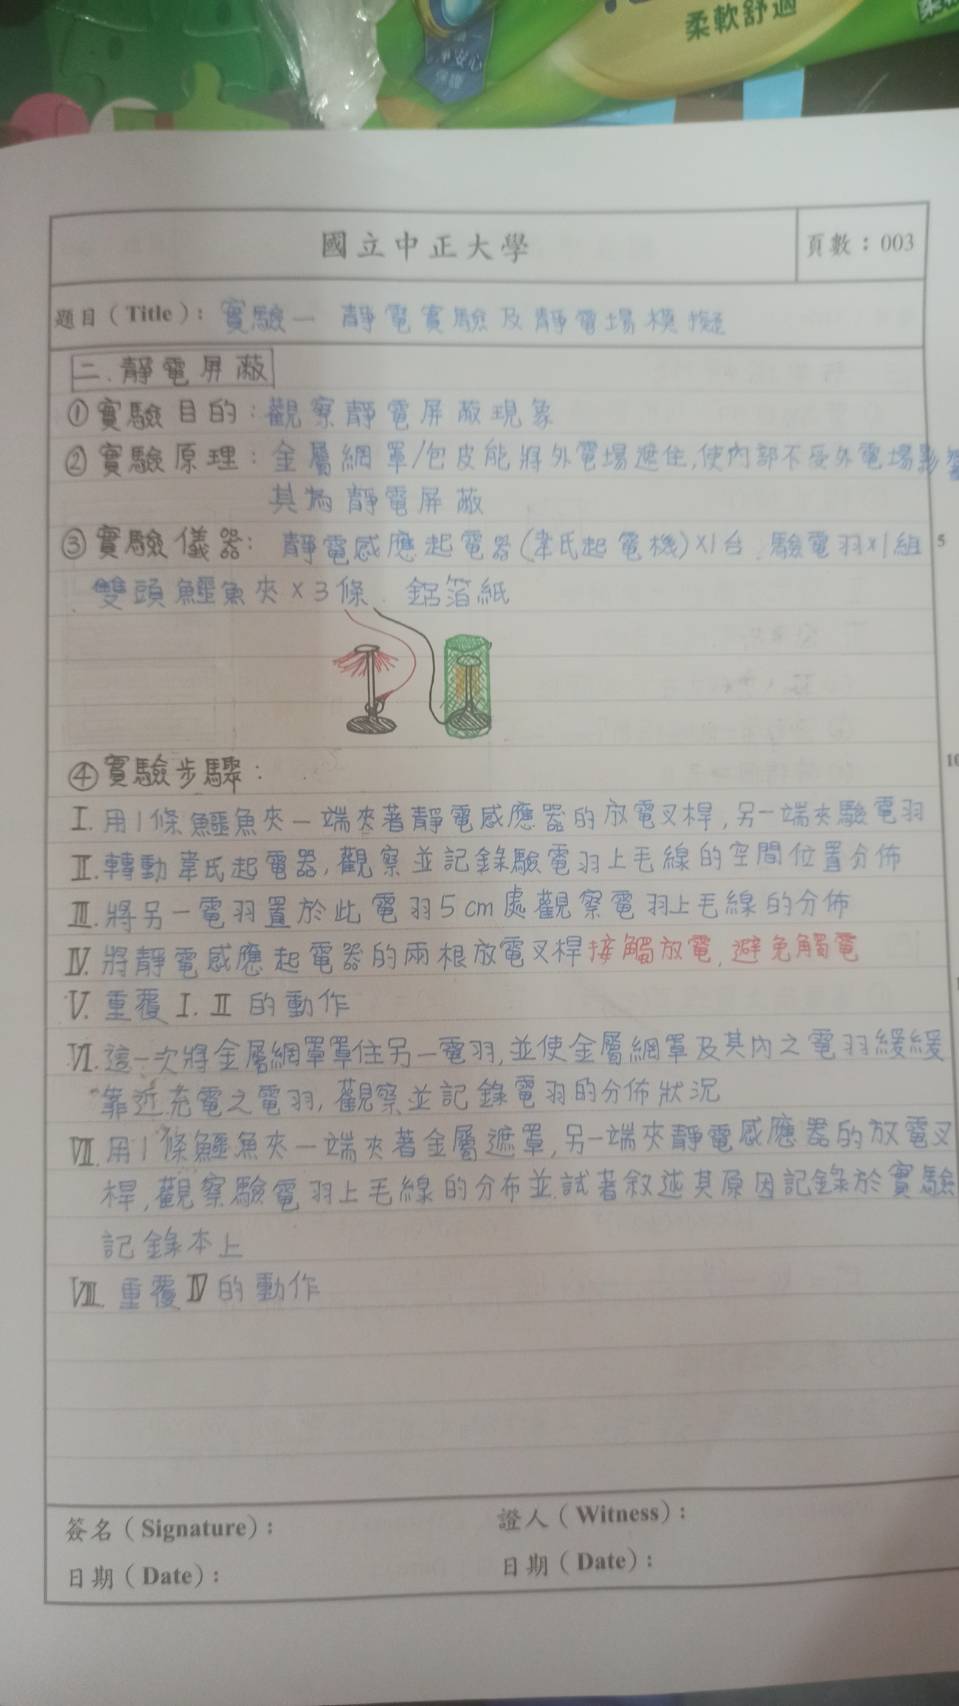 柔軟舒適
淨安心
保護
國立中正大學
頁數：003
題目（Title）：實驗一 靜電實驗及靜電場模擬
二.靜電屏蔽
①實驗目的：觀察靜電屏蔽現象
②實驗原理：金屬網罩/包皮能將外電場遮住,使內部不受外電場影響
其為靜電屏蔽
③實驗儀器：靜電感應起電器(韋氏起電機)×1台、驗電羽×1組 5
、雙頭鱷魚夾×3條、鋁箔紙
④實驗步驟：
10
I.用1條鱷魚夾一端夾著靜電感應器的放電叉桿,另一端夾驗電羽
II.轉動韋氏起電器,觀察並記錄驗電羽上毛線的空間位置分佈
III.將另一電羽置於此電羽5cm處觀察電羽上毛線的分佈
IV.將靜電感應起電器的兩根放電叉桿接觸放電,避免觸電
V.重覆I.II的動作
VI.這一次將金屬網罩罩住另一電羽,並使金屬網罩及其內之電羽緩緩
靠近充電之電羽,觀察並記錄電羽的分佈狀況
VII.用1條鱷魚夾一端夾著金屬遮罩,另一端夾靜電感應器的放電叉
桿,觀察驗電羽上毛線的分布並試著敘述其原因記錄於實驗
記錄本上
VIII.重覆IV的動作
簽名（Signature）：
證人（Witness）：
日期（Date）：
日期（Date）：